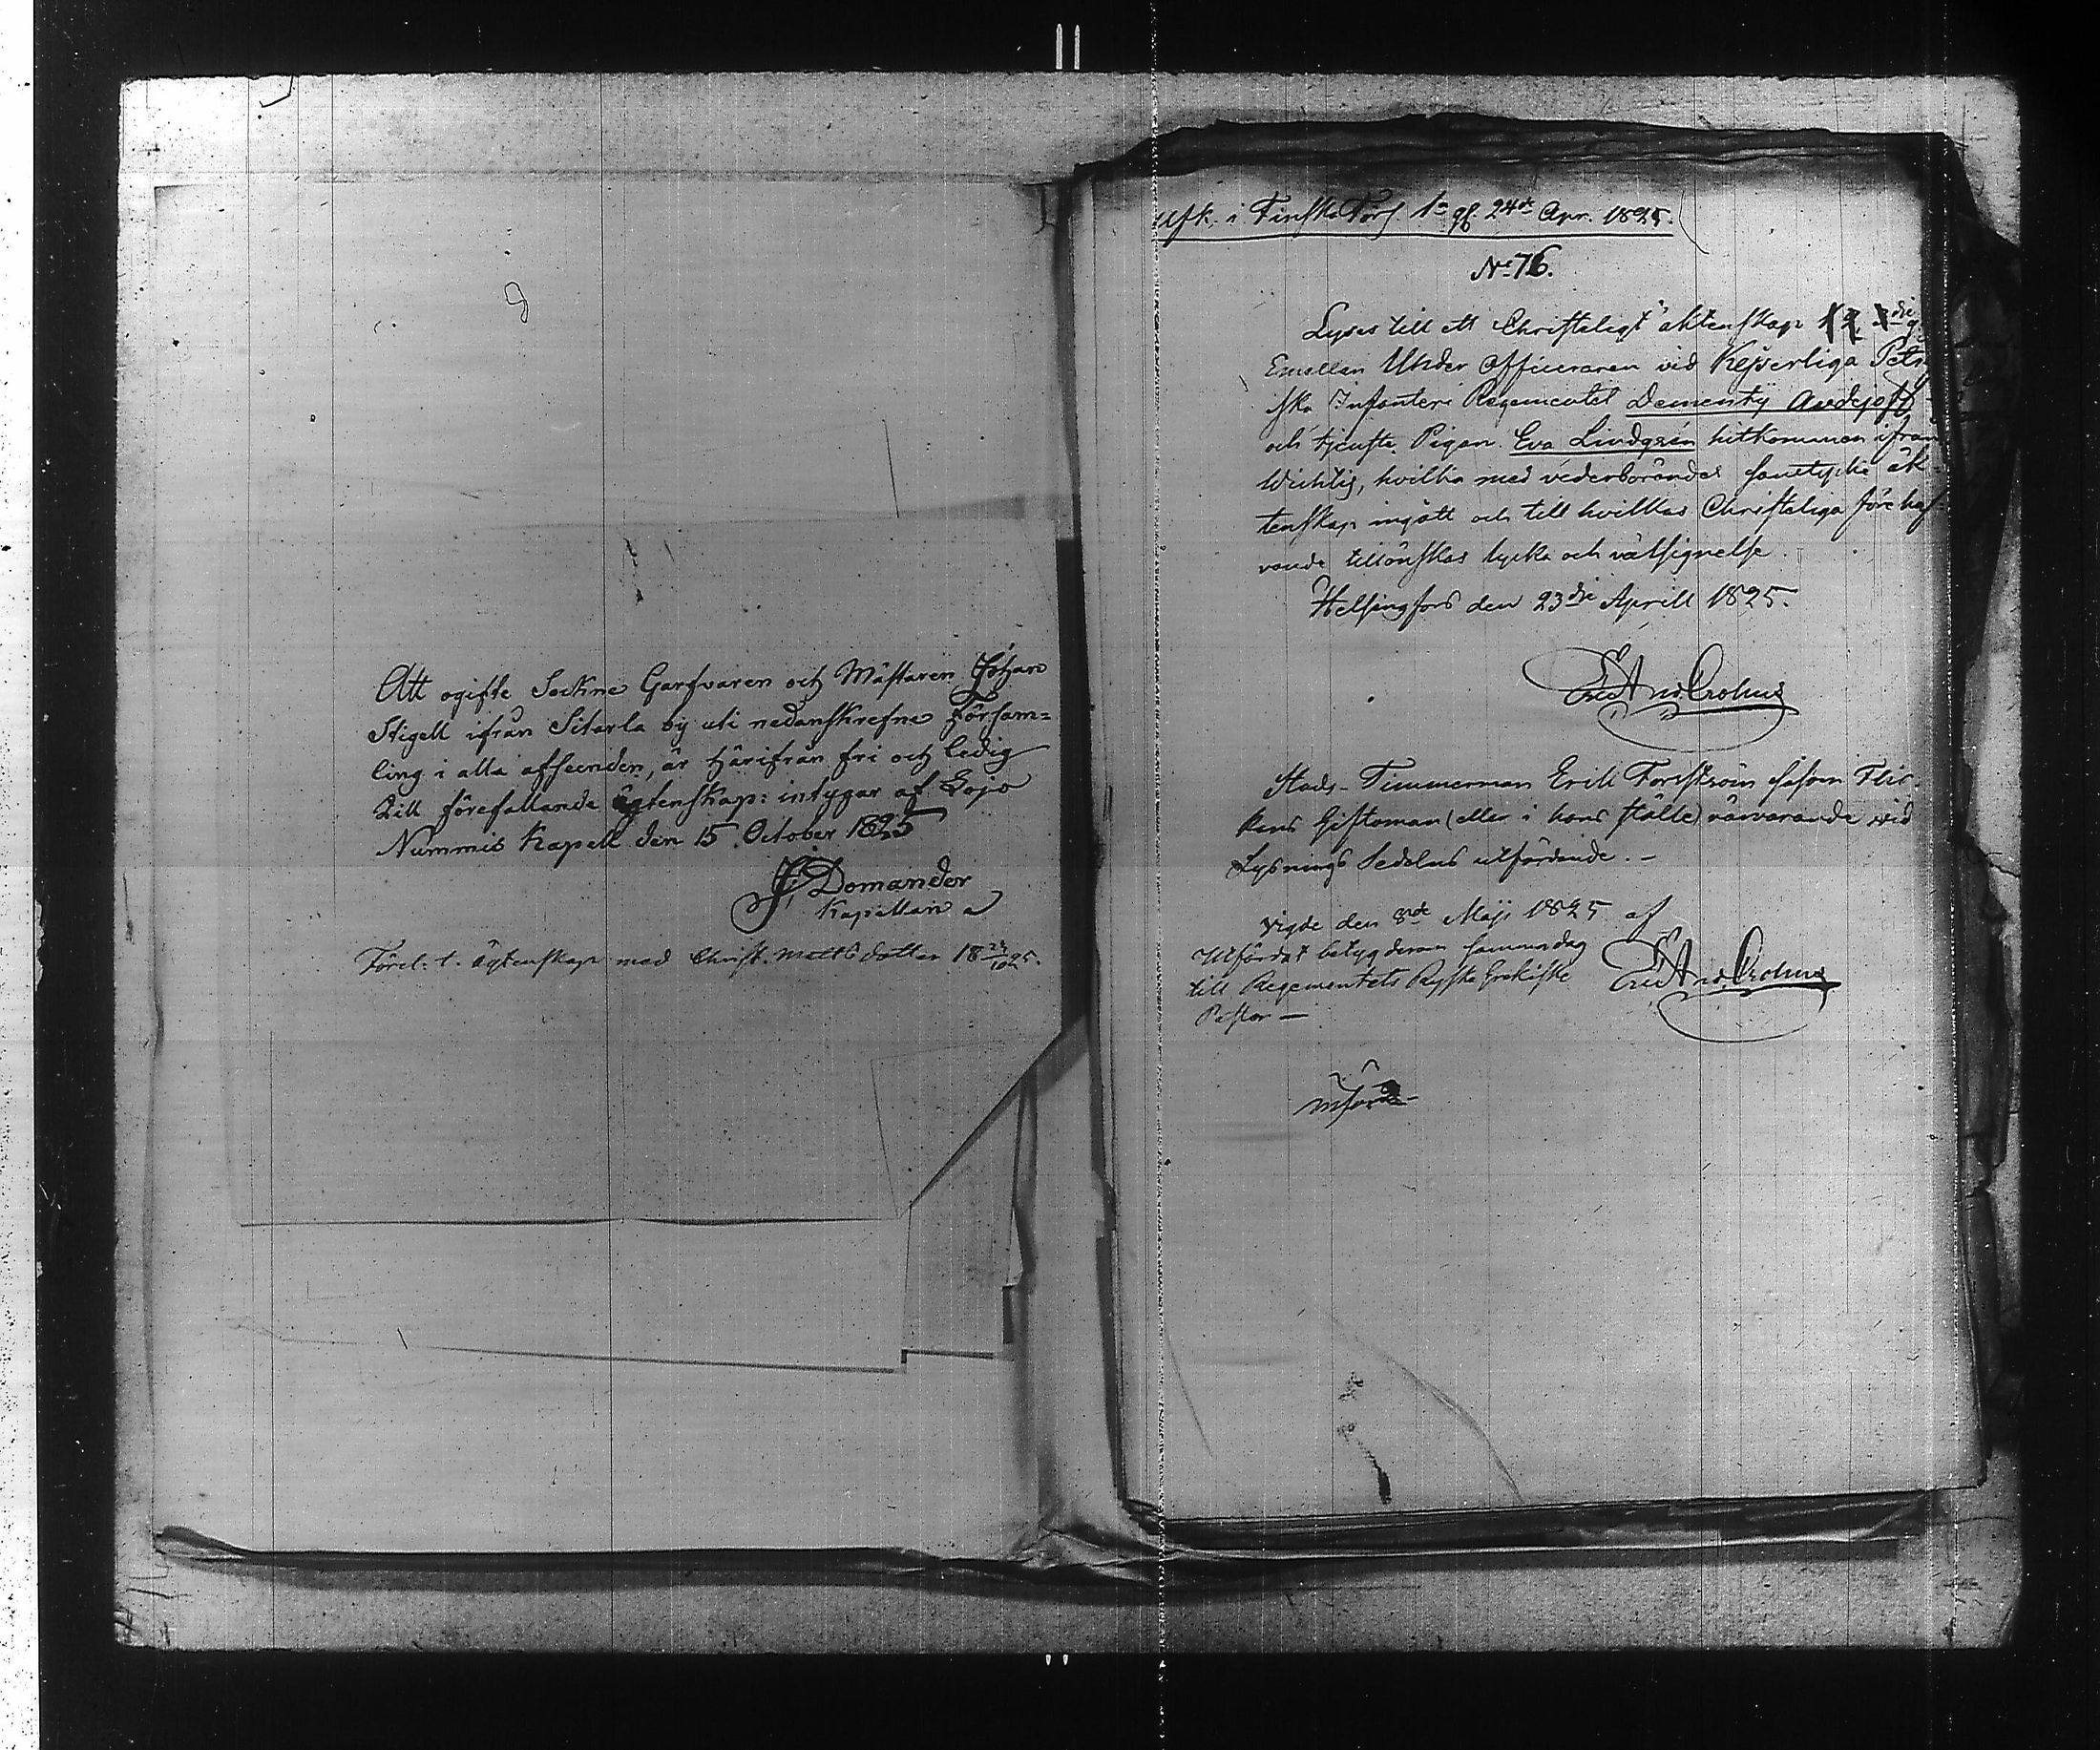 Att ogifte Sockne Garfvaren och Mästaren Johan
Stigell ifrån Sitarla by uti nedanskrefne Försam=
ling i alla afseenden, är härifrån fri och ledig
till förefallande ägtenskap: intygar af Lojo
Nummis Kapell den 15 October 1825
J: Domander
Kapellan
Förel. t. ägtenskap med Christ. Mattsdotter 18 23/10 25.
Afk. i Finska Förs 1a gg. 24de Apr. 1825.
No 76.
Lyses till ett Christeligt äktenskap 1 2 3dje g.
Emellan Under Officeraren vid Kejserliga Petr
ska Infanteri Regementet Dementij Avdejoff
och tjenste Pigan Eva Lindgrén hitkommen ifrån
Wichtis, hvilka med vederbörandes samtycke äk=
tenskap ingått och till hvilkas Christeliga förehaf=
vande tillönskas lycka och välsignelse.
Helsingfors den 23dje Aprill 1825.
Eric And Crohns
Stads-Timmerman Erik Forsström såsom Flic-
kans Giftoman (eller i hans ställe) närvarande wid
Lysnings Sedelns utfärdande. -
Vigde den 8de Maji 1825 af
Utfärdat betyg derom samma dag
till Regementets Ryska Grekiske
Eric And. Crohns
Pastor —
Införd